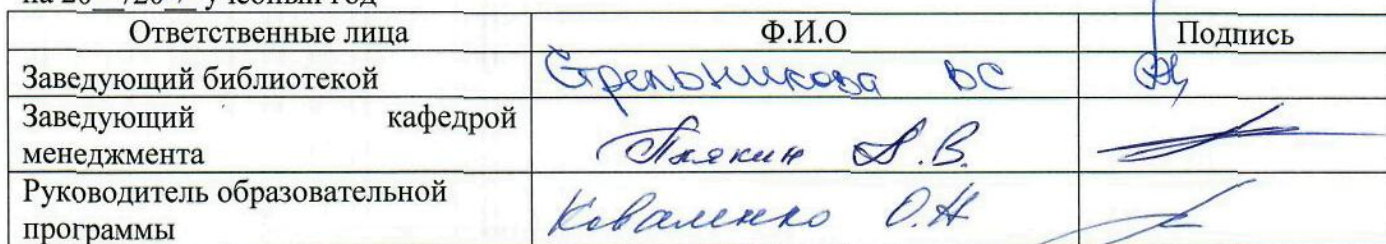 на 20__/20__ учебный год
Ответственные лица Ф.И.О Подпись
Заведующий библиотекой Стрельникова ВС
Заведующий кафедрой
менеджмента
Руководитель образовательной
программы Коваленко О.Н